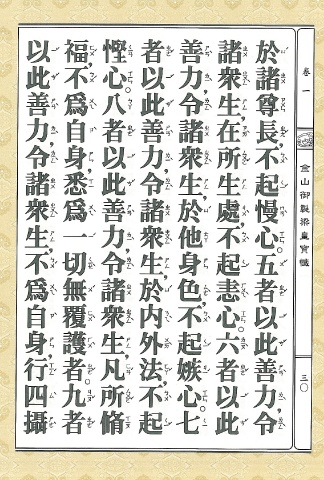 卷一
金山御製梁皇寶懺
三〇
於諸尊長，不起慢心。五者以此善力，令
諸眾生，在所生處，不起恚心。六者以此
善力，令諸眾生，於他身色，不起嫉心。七
者以此善力，令諸眾生，於內外法，不起
慳心。八者以此善力，令諸眾生，凡所脩
福，不為自身，悉為一切無覆護者。九者
以此善力，令諸眾生，不為自身，行四攝